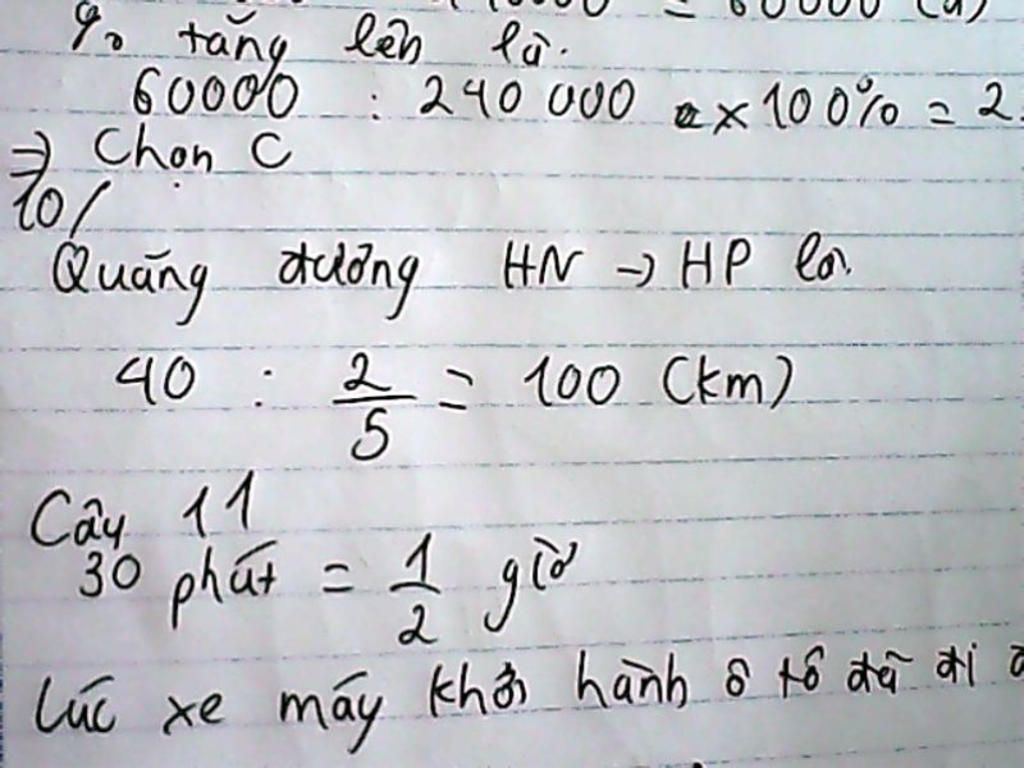 = 60000 (đ)
% tăng lên là.
60000 : 240 000 x 100% = 2
=> Chọn C
10/
Quãng đường HN -> HP là.
40 : 2/5 = 100 (km)
Câu 11
30 phút = 1/2 giờ
Lúc xe máy khởi hành ô tô đã đi